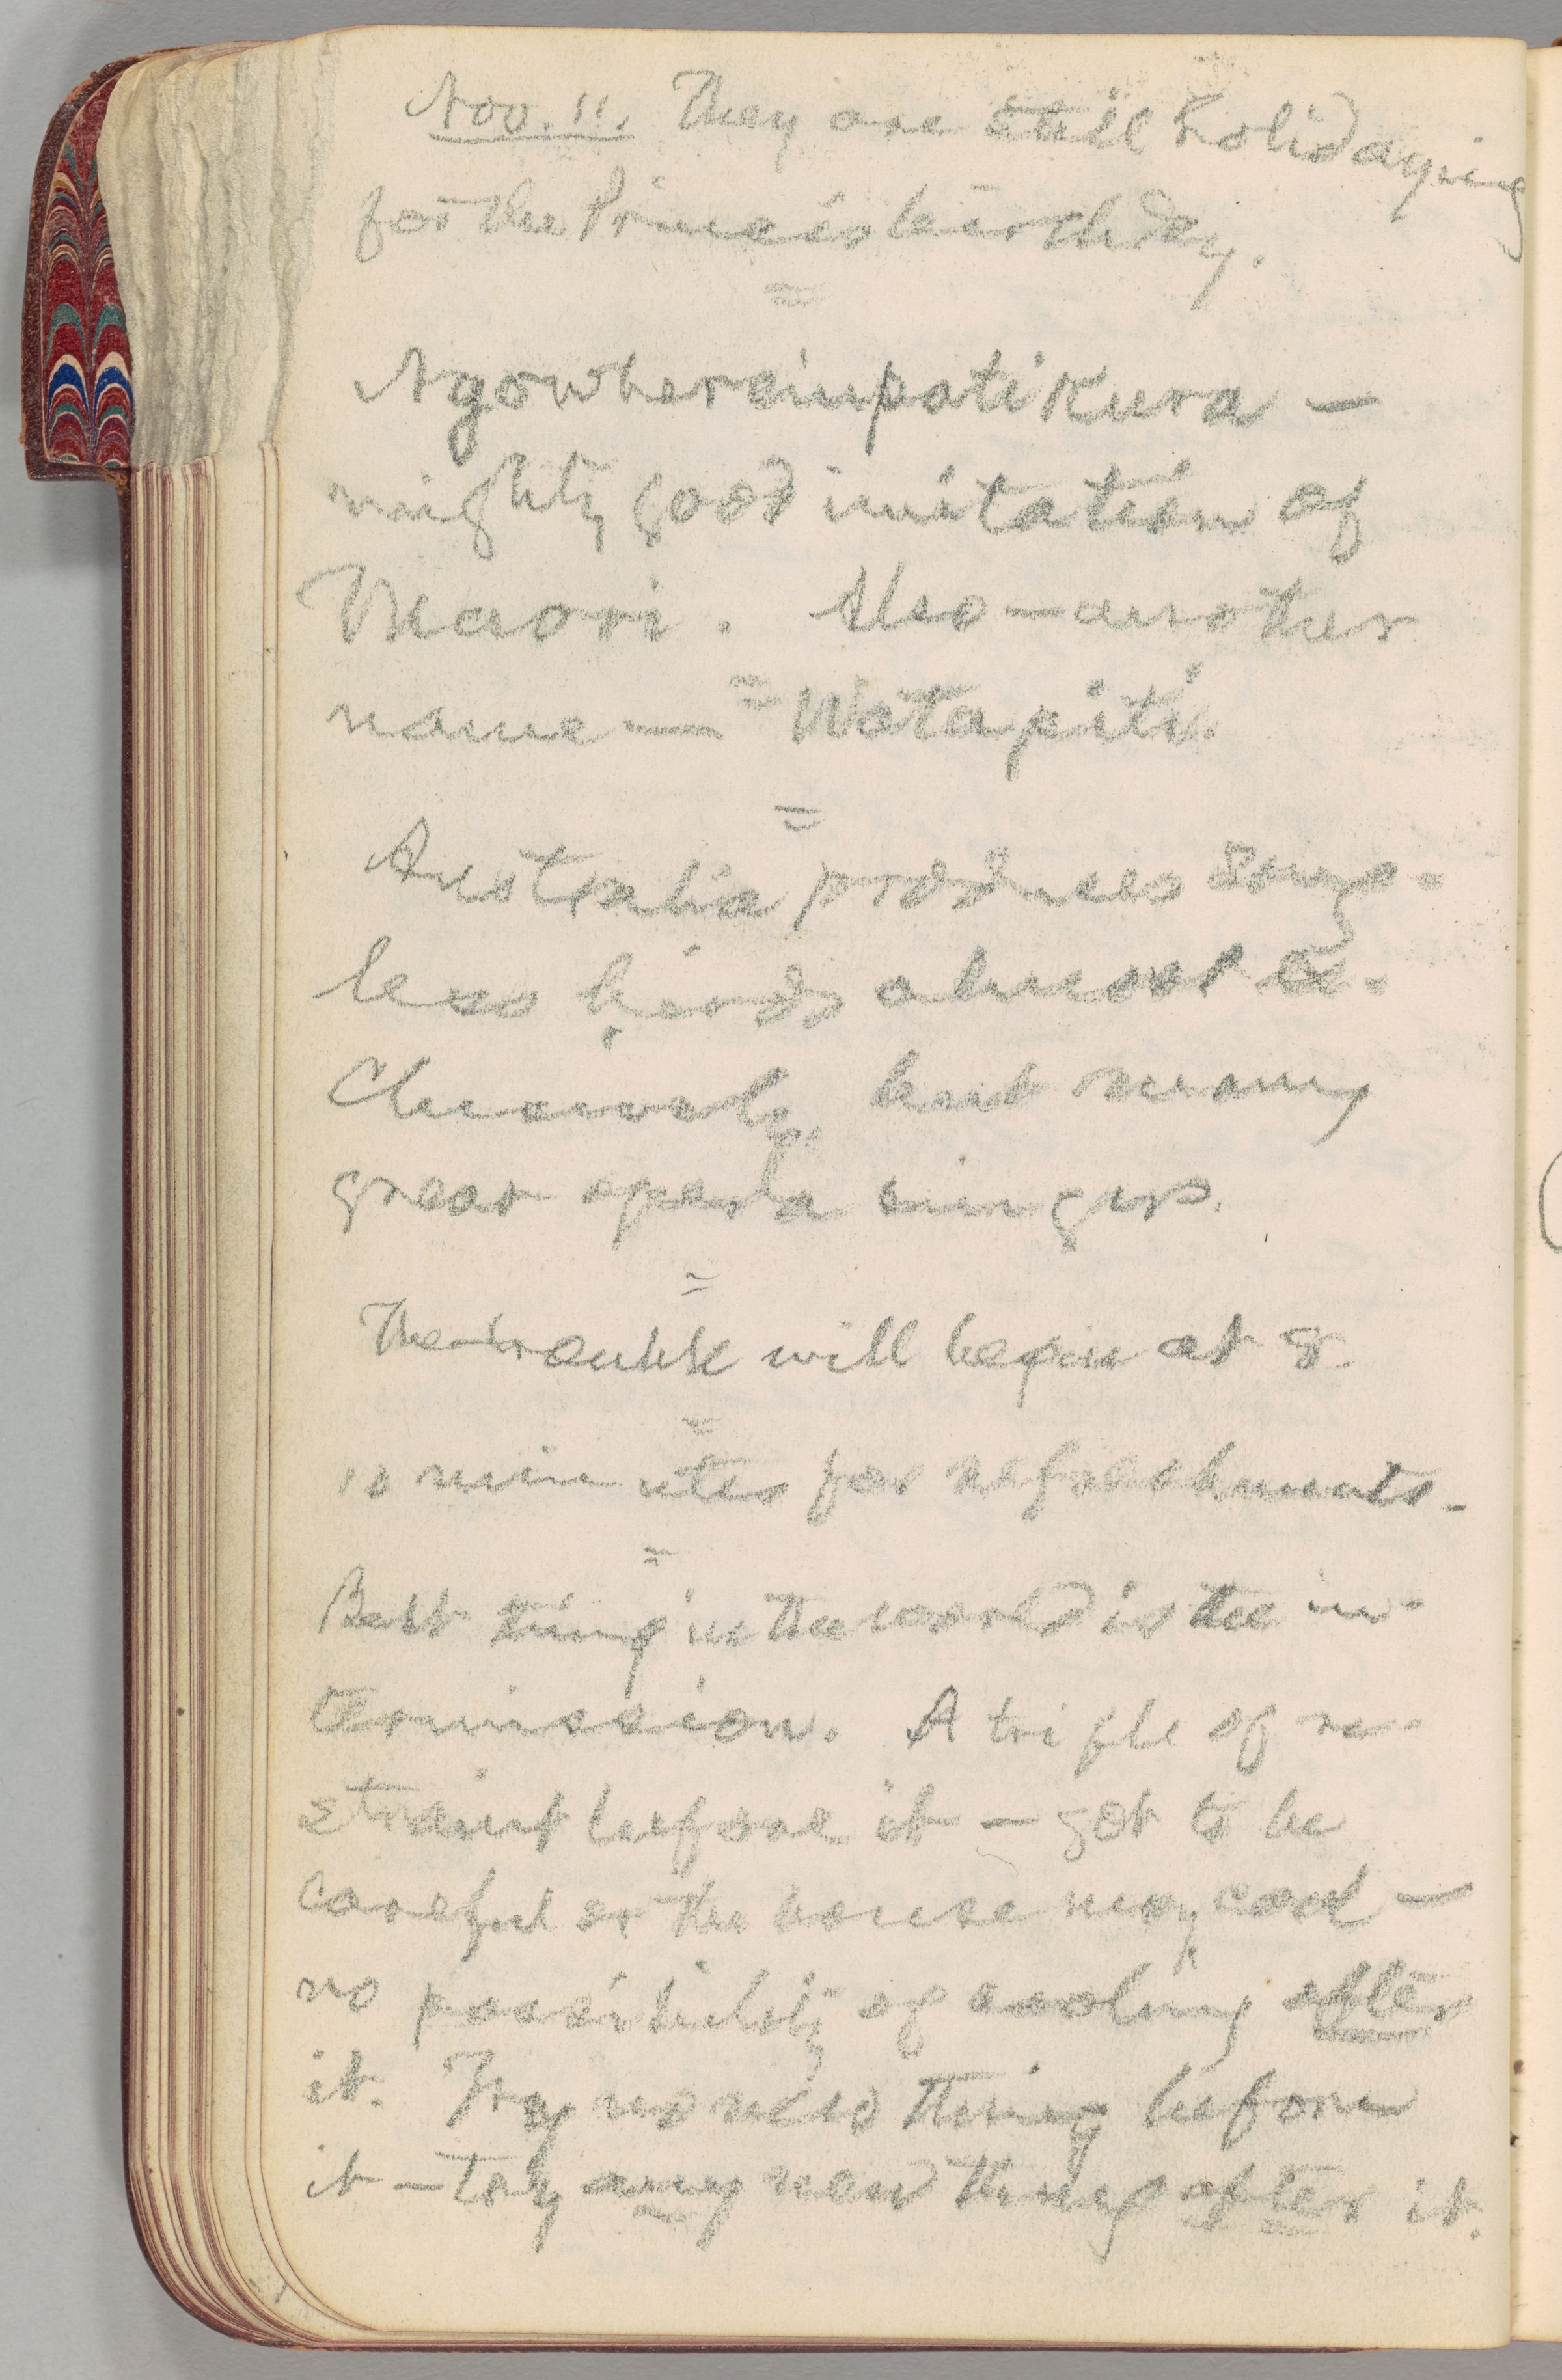 Nov. 11. They are still holidaying
for the Prince's birthday.
=
mighty good imitation of
Maori. Also — another
name — = Watapiti.
=
Australia produces song-
less birds almost ex-
clusively, but many
great opera singers.
=
The trouble will begin at 8.
=
10 minutes for refreshments.
=
Best thing in the world is the in-
termission. A trifle of re-
straint before it — got to be
careful or the house may cool —
no possibility of cooling after
it. Try no new thing before
it — try any new thing after it.